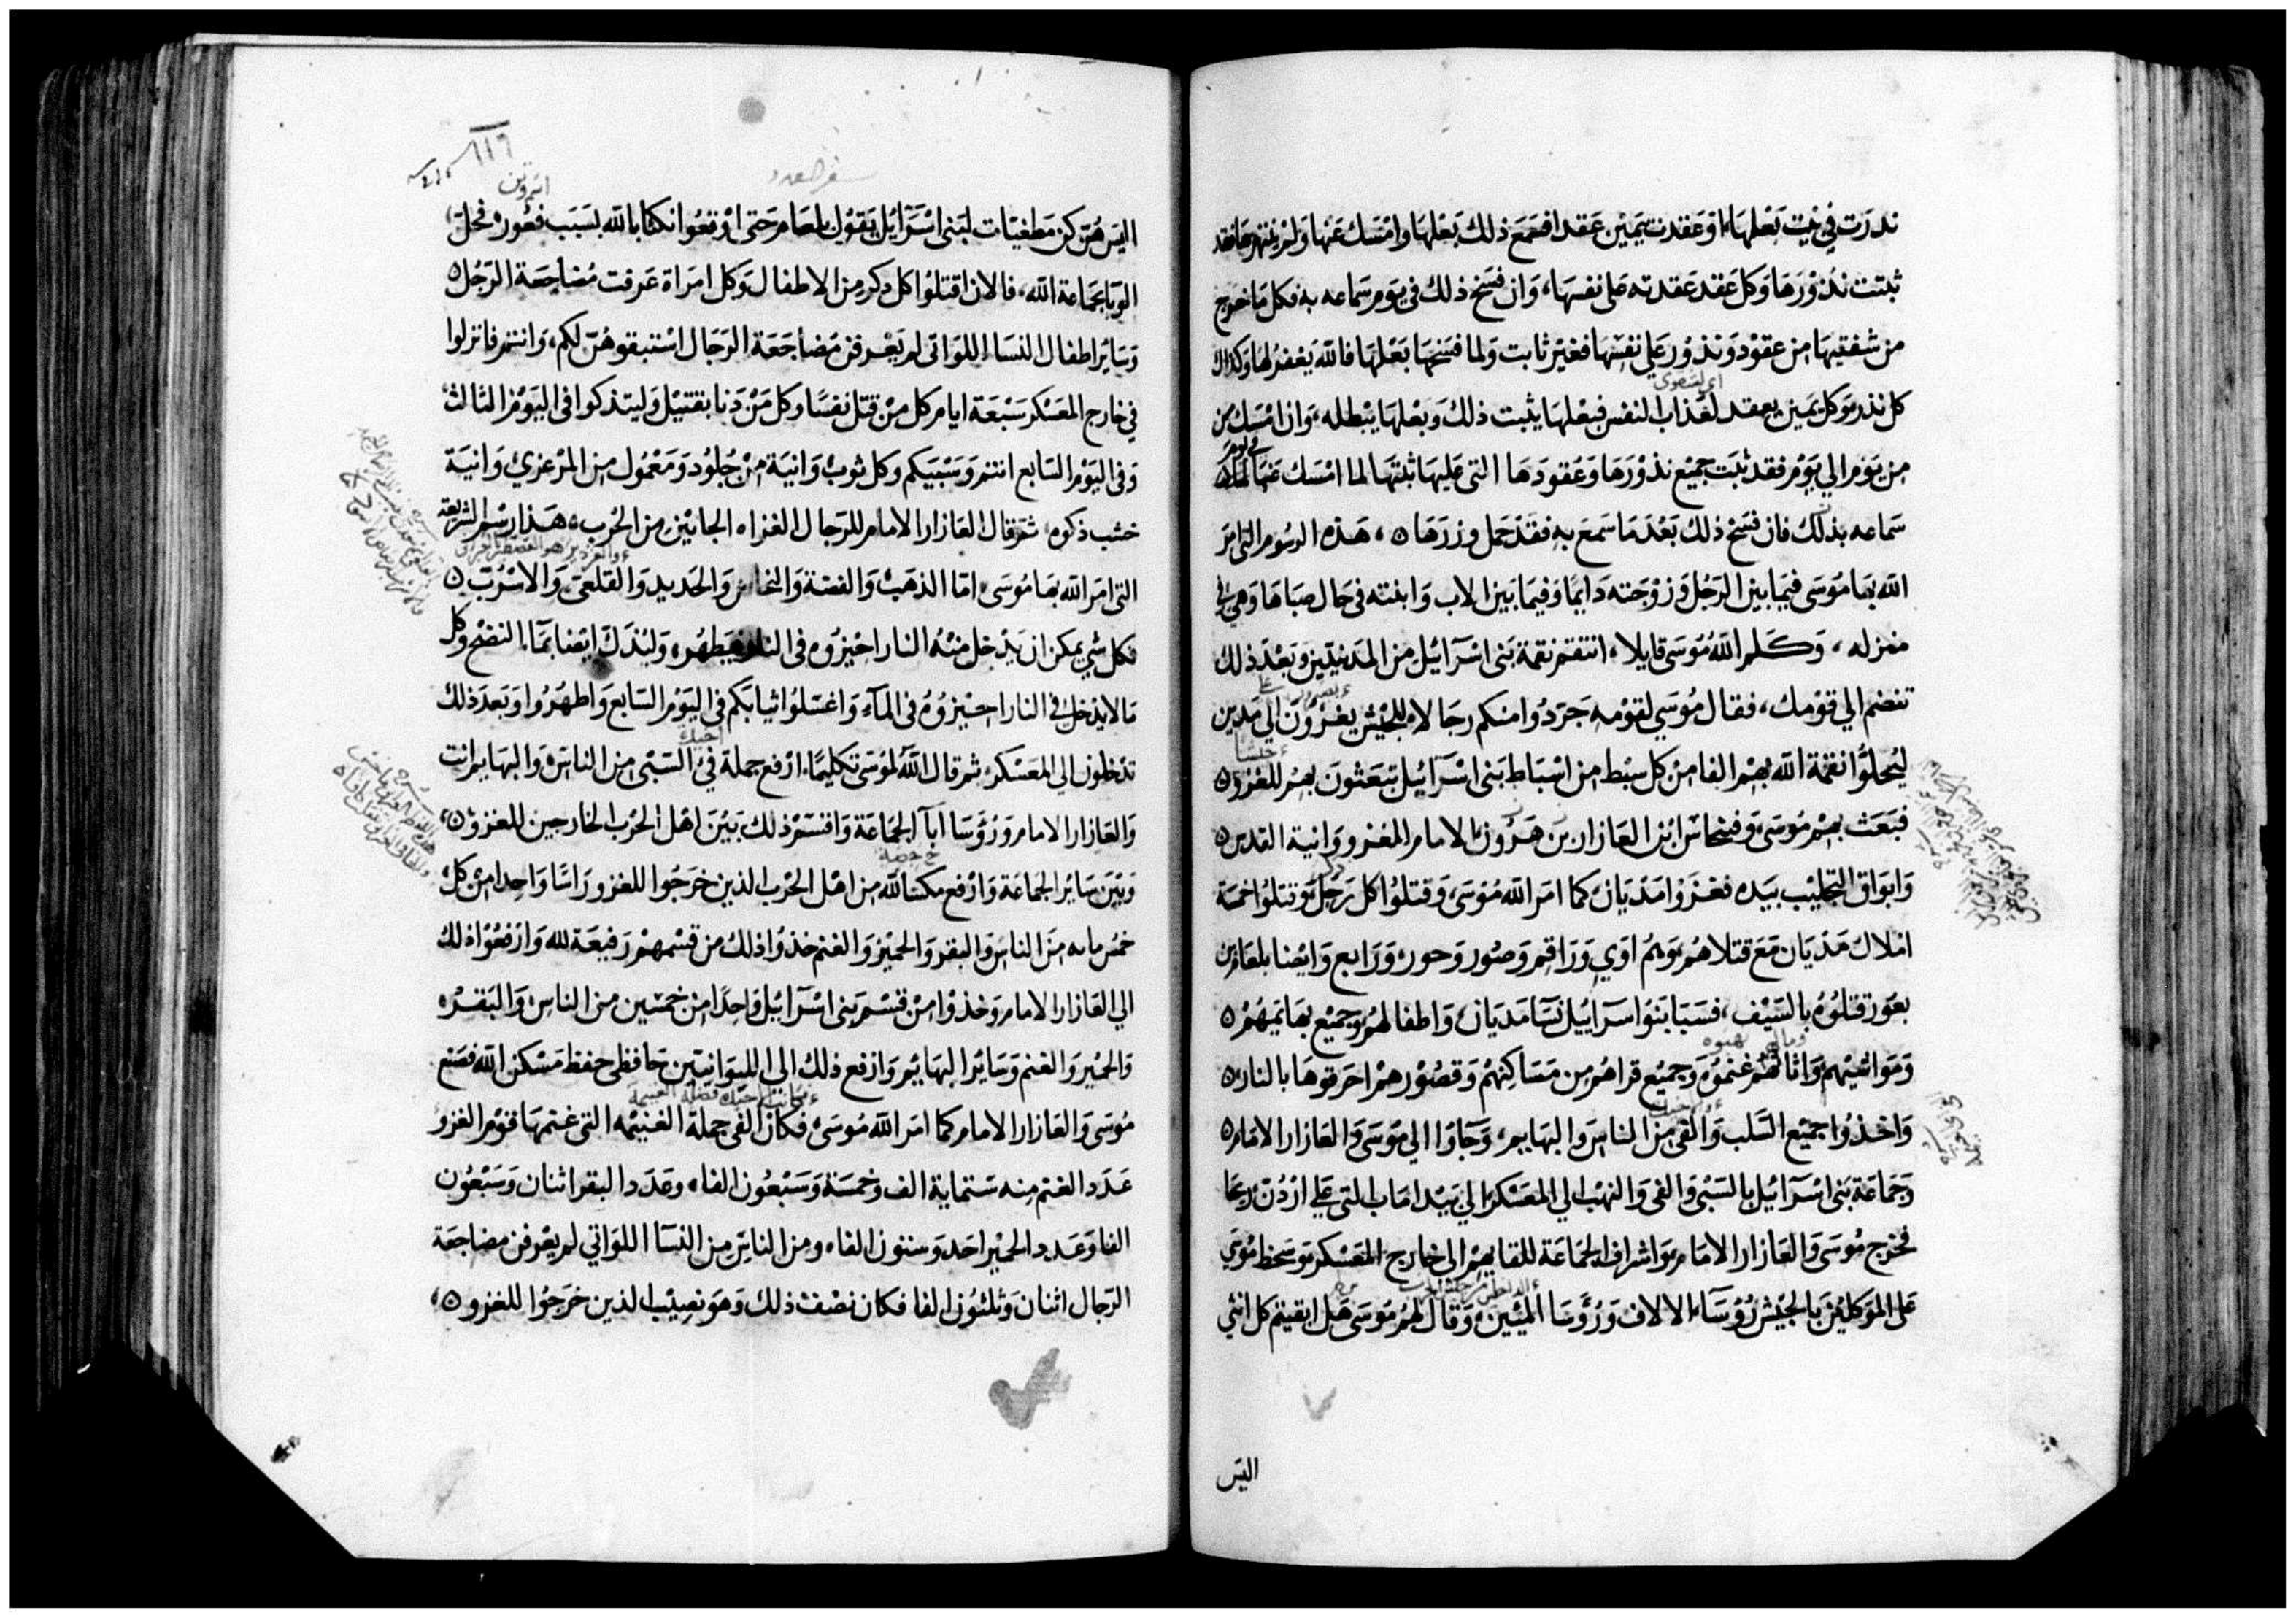 نذرت في بيت بعلها او عقدت يمين عقدا فسمع ذلك بعلها وامسك عنها ولم ينتهرها فقد
ثبتت نذورها وكل عقد عقدته على نفسها، وان فسخ ذلك في يوم سماعه به فكل ما خرج
من شفتيها من عقود ونذور على نفسها فغير ثابت ولما فسخها بعلها فالله يغفر لها وكذلك
كل نذر وكل يمين يعقد لعذاب النفس فبعلها يثبت ذلك وبعلها يبطله، وان امسك
من يوم الي يوم فقد ثبت جميع نذورها وعقودها التى عليها ثبتها لما امسك عنها
سماعه بذلك فان فسخ ذلك بعد ما سمع به فقد حمل وزرها ۵، هذه الرسوم التى امر
الله بها موسى فيما بين الرجل وزوجته دايما وفيما بين الاب وابنته فى حال صباها وهى في
منزله، وكلم الله موسى قايلا، انتقم نقمة بنى اسرائيل من المدنيين وبعد ذلك
تنضم الي قومك، فقال موسي لقومه جردوا منكم رجالا للجيش يغزون الي مدين
ليحلوا نقمة الله بهم الفا من كل سبط من اسباط بنى اسرائيل تبعثون بهم للغزو ۵
فبعث بهم موسى وفينحاس ابن العازار بن هرون الامام للغزو وانية القدس ۵
وابواق التجليب بيده فغزوا مديان كما امر الله موسى، وقتلوا كل رجل وقتلوا خمسة
املاك مديان مع قتلاهم وهم اوي وراقم وصور وحور ورابع وايضا بلعام بن
بعور قتلوه بالسيف، فسبا بنوا سراييل نسا مديان واطفالهم وجميع بهايمهم ۵
ومواشيهم واثاثهم غنموه وجميع قراهم من مساكنهم وقصورهم احرقوها بالنار ۵
واخذوا جميع السلب والفى من الناس والبهايم، وجاوا الي موسى والعازار الامام ۵
وجماعة بنى اسرائيل بالسبى والفى والنهب الي المعسكر الي بيدا ماب التى علي اردن ريحا
فخرج موسى والعازار الامام واشراف الجماعة للقايهم الى خارج المعسكر وسخط موسى
على الموكلين بالجيش رؤساء الالاف ورؤسا المئين، وقال لهم موسى هل ابقيتم كل انثى
اليس
سفر العدد
اليس هن كن مطغيات لبنى اسرائيل بقول بلعام حتى اوقعوا نكثا بالله بسبب فعور، فحل
الوبا بجماعة الله، فالان اقتلوا كل ذكر من الاطفال وكل امراة عرفت مضاجعة الرجل ۵
وساير اطفال النسا اللواتى لم يعرفن مضاجعة الرجال استبقوهن لكم، وانتم فانزلوا
في خارج المعسكر سبعة ايام كل من قتل نفسا وكل من دنا بقتيل وليتذكوا فى اليوم الثالث
وفى اليوم السابع انتم وسبيكم وكل ثوب وانية من جلود ومعمول من المرعزي وانية
خشب ذكوه، ثم قال العازار الامام للرجال الغزاه الجايين من الحرب، هذا رسم الشريعة
التى امر الله بها موسى، اما الذهب والفضة والنحاس والحديد والقلعى والاسرب ۵
فكل شي يمكن ان يدخل منه النار احيزوه فى النار فيطهر، وليذك ايضا بماء النضح وكل
ما لا يدخل في النار احيزوه فى المآء واغسلوا ثيابكم في اليوم السابع واطهروا وبعد ذلك
تدخلون الي المعسكر، ثم قال الله لموسى تكليما، ارفع جملة فى السبى من الناس والبهايم انت
والعازار الامام ورؤسا ابآ الجماعة واقتسم ذلك بين اهل الحرب الخارجين للغزو ۵،
وبين ساير الجماعة وارفع مكسا لله من اهل الحرب الذين خرجوا للغزو راسا واحدا من كل
خمس مايه من الناس والبقر والحمير والغنم خذوا ذلك من قسمهم رفيعة لله وارفعوا ذلك
الي العازار الامام وخذوا من قسم بنى اسرائيل واحدا من خمسين من الناس والبقر
والحمير والغنم وساير البهايم وارفع ذلك الى الليوانيين حافظى حفظ مسكن الله فصنع
موسى والعازار الامام كما امر الله موسى فكان الفى جملة الغنيمه التى غنمها قوم الغزو
عدد الغنم منه ستماية الف وخمسة وسبعون الفا، وعدد البقر اثنان وسبعون
الفا وعدد الحمير احد وستون الفا، ومن الناس من النسآ اللواتي لم يعرفن مضاجعة
الرجال اثنان وثلثون الفا فكان نصف ذلك وهو نصيب الذين خرجوا للغزو ۵،